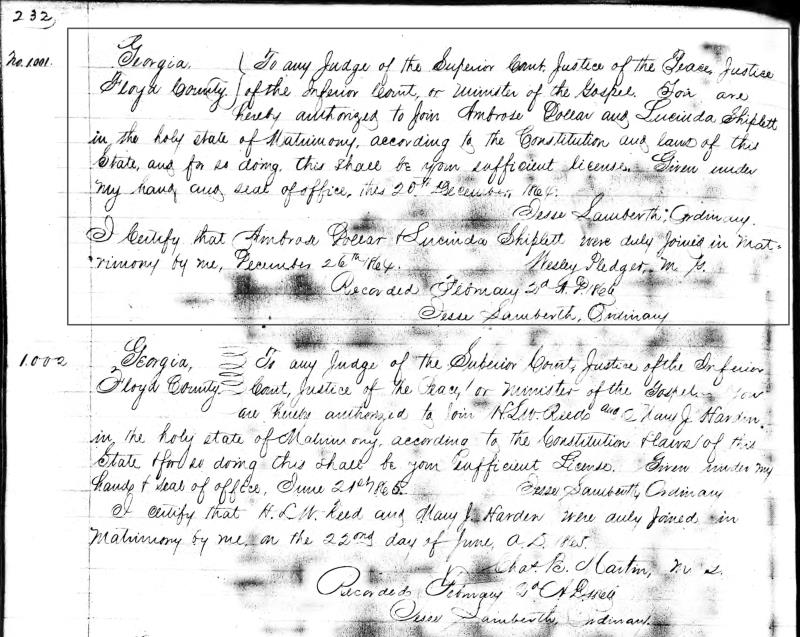 232
No. 1001.
Georgia, To any Judge of the Superior Court, Justice of the Peace, Justice
Floyd County. of the Inferior Court, or Minister of the Gospel. You are
hereby authorized to Join Ambrose Dollar and Lucinda Shiplett
in the holy state of Matrimony, according to the Constitution and laws of this
State, and for so doing, this shall be your sufficient license. Given under
my hand and seal of office, this 20th December, 1864.
Jesse Lamberth, Ordinary.
I Certify that Ambrose Dollar & Lucinda Shiplett were duly Joined in Mat-
rimony by me, December 26th 1864. Wesley Pledger, M. G.
Recorded February 2d A.D. 1866
Jesse Lamberth, Ordinary
1.002
Georgia, To any Judge of the Superior Court, Justice of the Inferior
Floyd County. Court, Justice of the Peace, or Minister of the Gospel. You
are hereby authorized to Join H.L.W. Reed and Mary J. Harden.
in the holy state of Matrimony, according to the Constitution & laws of this
State & for so doing this shall be your sufficient License. Given under my
hand & seal of office, June 21st 1865. Jesse Lamberth, Ordinary
I certify that H.L.W. Reed and Mary J. Harden were duly Joined in
Matrimony by me, on the 22nd day of June, A.D. 1865.
B. Martin,
Recorded February 2d A.D. 1866
Jesse Lamberth, Ordinary.